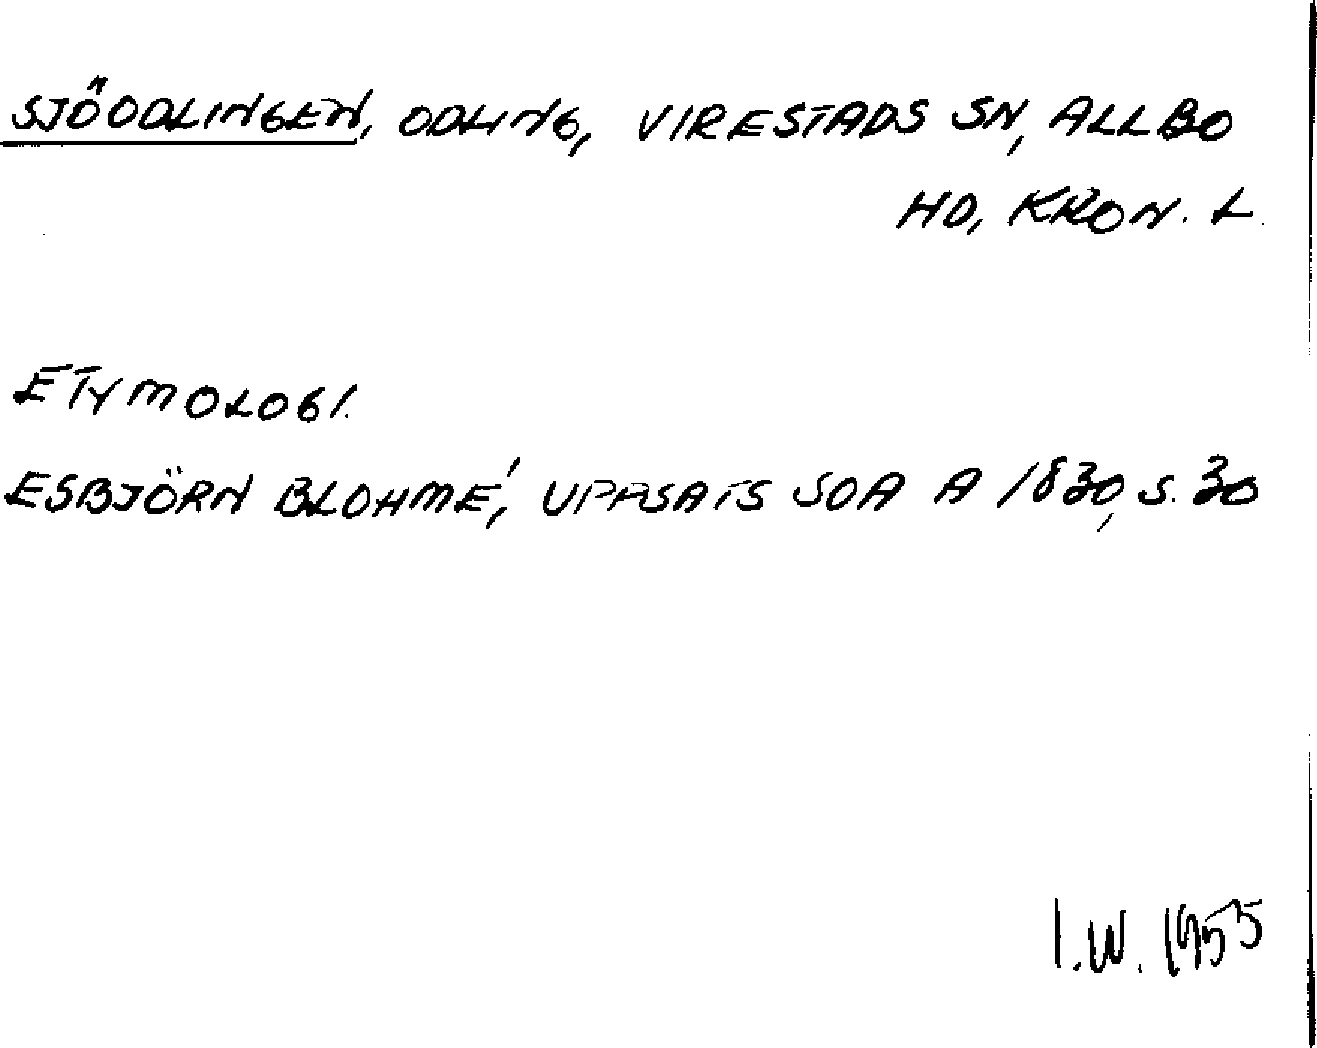 SJÖODLINGEN, ODLING, VIRESTADS SN, ALLBO
HD, KRON. L.
ETYMOLOGI.
ESBJÖRN BLOHMÉ, UPPSATS SOA A 1830, S. 30
I.W. 1955